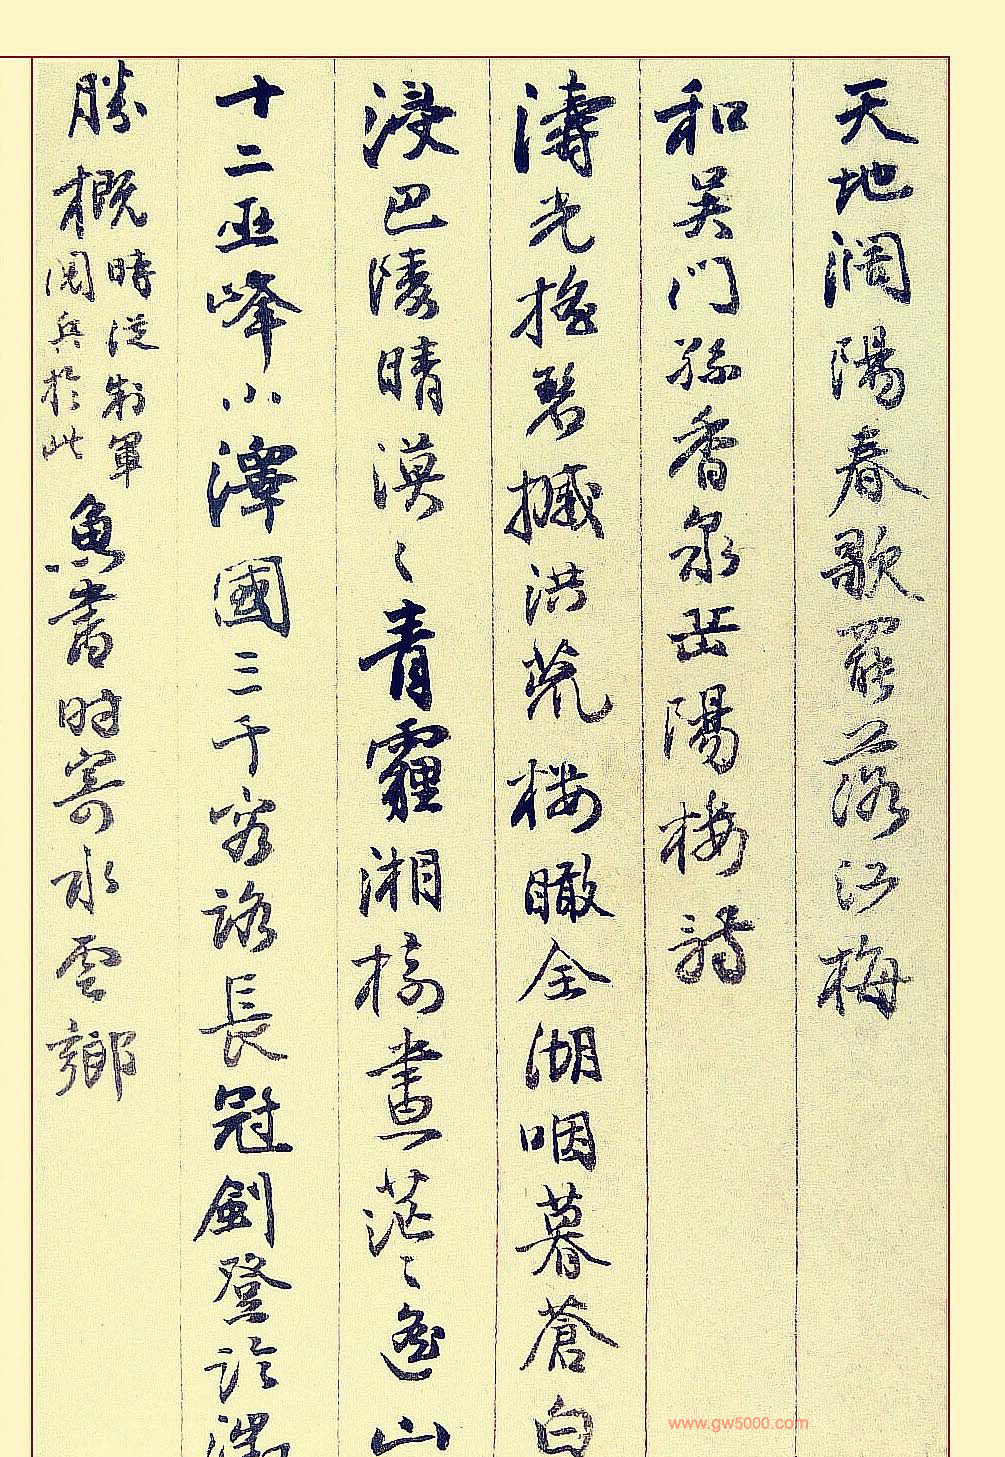 天地潤陽春歌罷落江梅
和吴门孫香泉岳陽楼詩
濤光摇碧撼洪荒楼瞰全湖咽暮蒼白
浸巴陵晴漠〻青霾湘橘畫茫〻遙山
十二巫峰小澤國三千客路長冠劍登臨滿
勝概時從制軍閲兵於此魚書时寄水雲鄉
www.gw5000.com